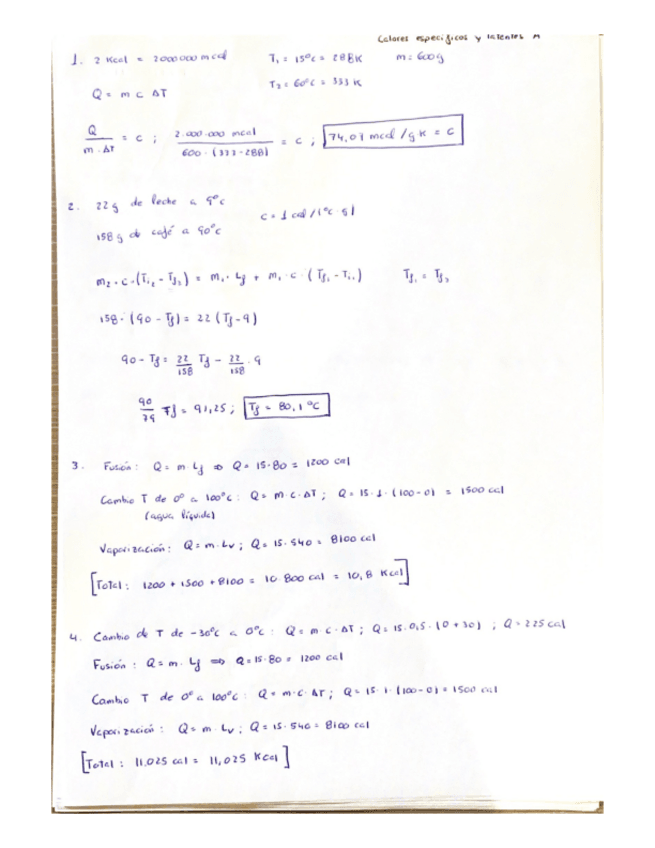 Calores específicos y latentes A
1. 2 Kcal = 2000000 mcal T₁ = 15ºC = 288K m = 600g
T₂ = 60ºC = 333 K
Q = m c ΔT
Q / m·ΔT = c ; 2.000.000 mcal / 600·(333-288) = c ; 74,07 mcal/g K = c
2. 22g de leche a 9ºC
c = 1 cal/(ºC·g)
158g de café a 90ºC
m₂·c·(Ti₂ - Tf₂) = m₁·Lf + m₁·c·(Tf₁ - Ti₁) Tf₁ = Tf₂
158·(90 - Tf) = 22(Tf-9)
90 - Tf = 22/158 Tf - 22/158 · 9
90/79 Tf = 91,25 ; Tf = 80,1ºC
3. Fusión: Q = m Lf ⇒ Q = 15·80 = 1200 cal
Cambio T de 0º a 100ºC: Q = m·c·ΔT ; Q = 15·1·(100-0) = 1500 cal
(agua líquida)
Vaporización: Q = m·Lv ; Q = 15·540 = 8100 cal
[Total: 1200 + 1500 + 8100 = 10 800 cal = 10,8 Kcal]
4. Cambio de T de -30ºC a 0ºC: Q = m c·ΔT ; Q = 15·0,5·(0+30) ; Q = 225 cal
Fusión: Q = m·Lf ⇒ Q = 15·80 = 1200 cal
Cambio T de 0º a 100ºC: Q = m·c·ΔT ; Q = 15·1·(100-0) = 1500 cal
Vaporización: Q = m·Lv ; Q = 15·540 = 8100 cal
[Total: 11.025 cal = 11,025 Kcal]